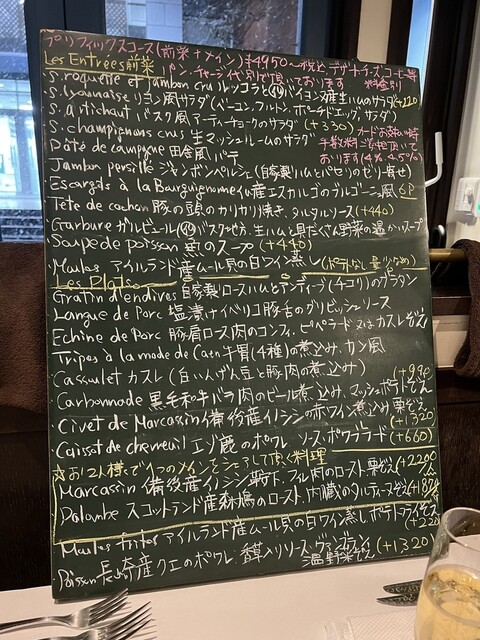 プリフィックスコース(前菜+メイン)¥4950〜税込、デザート・チーズ・コーヒー等
料金別
Les Entrées 前菜 パン、チャージ代別で頂いております
S. roquette et jambon cru ルッコラと バイヨンヌ産生ハムのサラダ +220
S. lyonnaise リヨン風サラダ(ベーコン、クルトン、ポーチドエッグ、サラダ)
S. artichaut バスク風アーティチョークのサラダ (+330)
S. champignons crus 生マッシュルームのサラダ
カードお支払い時
手数料をご負担頂いて
おります(4%, 4.5%)
Pâté de campagne 田舎風パテ
Jambon persillé ジャンボンペルシエ(自家製ハムとパセリのゼリー寄せ)
Escargots à la Bourguignonne 仏産エスカルゴのブルゴーニュ風 6P
Tête de cochon 豚の頭のカリカリ焼き、タルタルソース (+440)
Garbure ガルビュール バスク地方、生ハムと具だくさん野菜の温かいスープ
Soupe de poisson 魚のスープ (+440)
Moules アイルランド産ムール貝の白ワイン蒸し (ポテトなし 量少なめ)
Les Plats
Gratin d'endives 自家製ロースハムとアンディーブ(チコリ)のグラタン
Langue de Porc 塩漬けイベリコ豚舌のグリビッシュソース
Echine de Porc 豚肩ロース肉のコンフィ、ピペラード又はカスレぞえ
Tripes à la mode de Caen 牛胃(4種)の煮込み、カン風
Cassoulet カスレ(白いんげん豆と豚肉の煮込み)
Carbonnade 黒毛和牛バラ肉のビール煮込み、マッシュポテトぞえ (+990
Civet de Marcassin 備後産イノシシの赤ワイン煮込み、栗ぞえ +1320
Cuissot de chevreuil エゾ鹿のポワレ ソース・ポワヴラード (+660)
☆お2人様で1つのメインをシェアして頂く料理
Marcassin 備後産イノシシ 肉のロースト、栗ぞえ +2200
Palombe スコットランド産森鳩のロースト、内臓のタルティーヌぞえ
Moules frites アイルランド産ムール貝の白ワイン蒸し ポテトフライぞえ +220
Poisson 長崎産クエのポワレ 香草入りソース・ヴァンブラン
温野菜ぞえ (+1320)